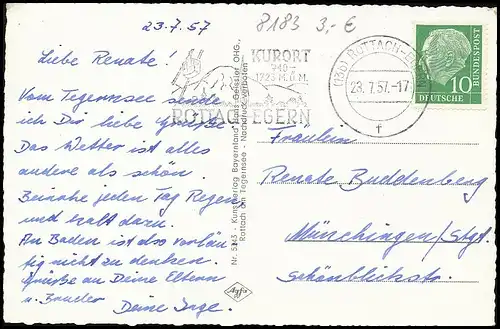 23.7.57
8183 3,- €
Liebe Renate!
Vom Tegernsee sende
ich Dir liebe Grüße.
Das Wetter ist alles
andere als schön.
Beinahe jeden Tag Regen
und kalt dazu.
An Baden ist also vorläu
fig nicht zu denken.
Grüße an Deine Eltern
u. Bruder
Deine Inge.
KURORT
740-
1723 M.Ü.M.
ROTTACH-EGERN
(13b) ROTTACH-
23.7.57.-17
f
10
DEUTSCHE
BUNDESPOST
Nr. 5243 - Kunstverlag Bayernland Hans Geissler OHG.,
Rottach am Tegernsee - Nachdruck verboten
Agfa
Fräulein
Renate Buddenberg
Münchingen/Stgt.
Schönblickstr.